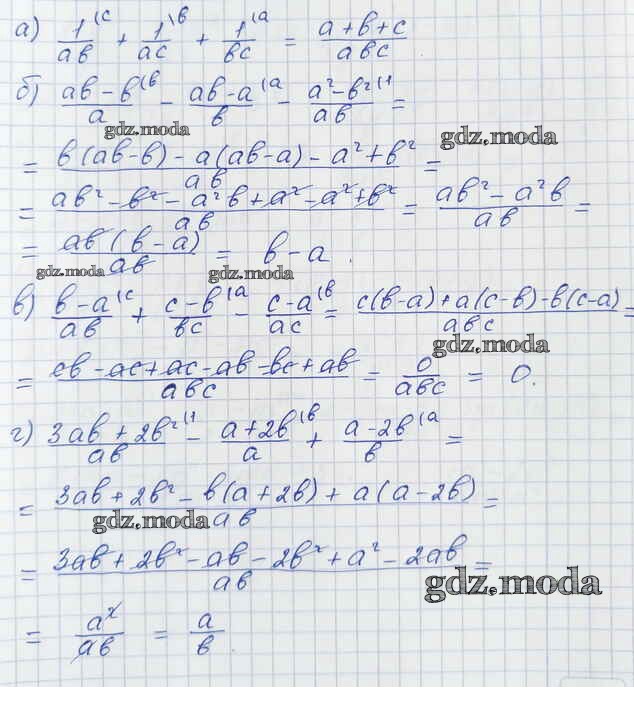 а) 1/ab (c + 1/ac (b + 1/bc (a = (a + b + c)/abc
б) (ab - b)/a (b - (ab - a)/b (a - (a² - b²)/ab (1 =
gdz.moda
gdz.moda
= (b(ab - b) - a(ab - a) - a² + b²)/ab =
= (ab² - b² - a²b + a² - a² + b²)/ab = (ab² - a²b)/ab =
= ab(b - a)/ab = b - a.
gdz.moda gdz.moda
в) (b - a)/ab (c + (c - b)/bc (a - (c - a)/ac (b = (c(b - a) + a(c - b) - b(c - a))/abc =
gdz.moda
= (cb - ac + ac - ab - bc + ab)/abc = 0/abc = 0.
г) (3ab + 2b²)/ab (1 - (a + 2b)/a (b + (a - 2b)/b (a =
= (3ab + 2b² - b(a + 2b) + a(a - 2b))/ab =
gdz.moda
= (3ab + 2b² - ab - 2b² + a² - 2ab)/ab =
gdz.moda
= a²/ab = a/b.